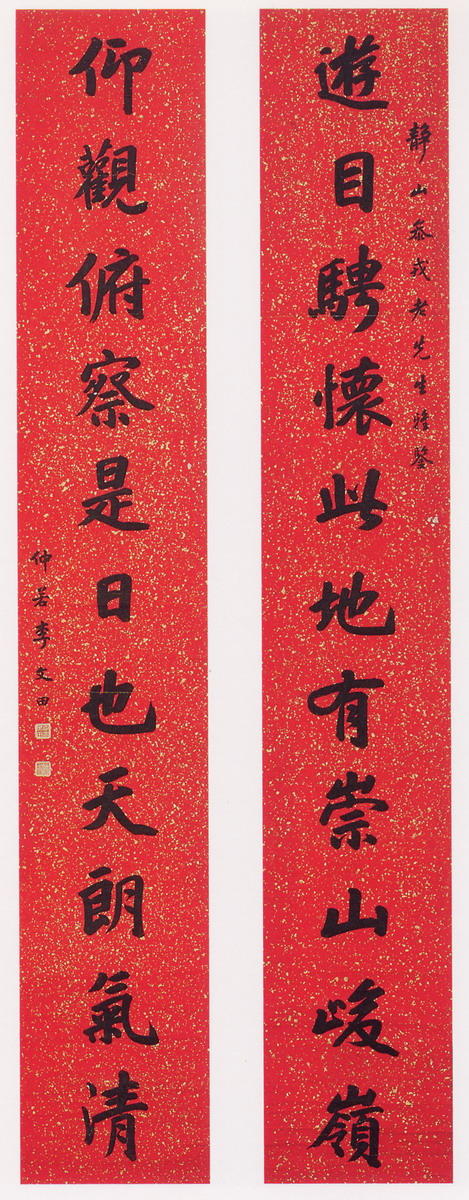 遊目騁懷此地有崇山峻嶺
靜山叅戎老先生雅鑒
仰觀俯察是日也天朗氣清
仲若李文田